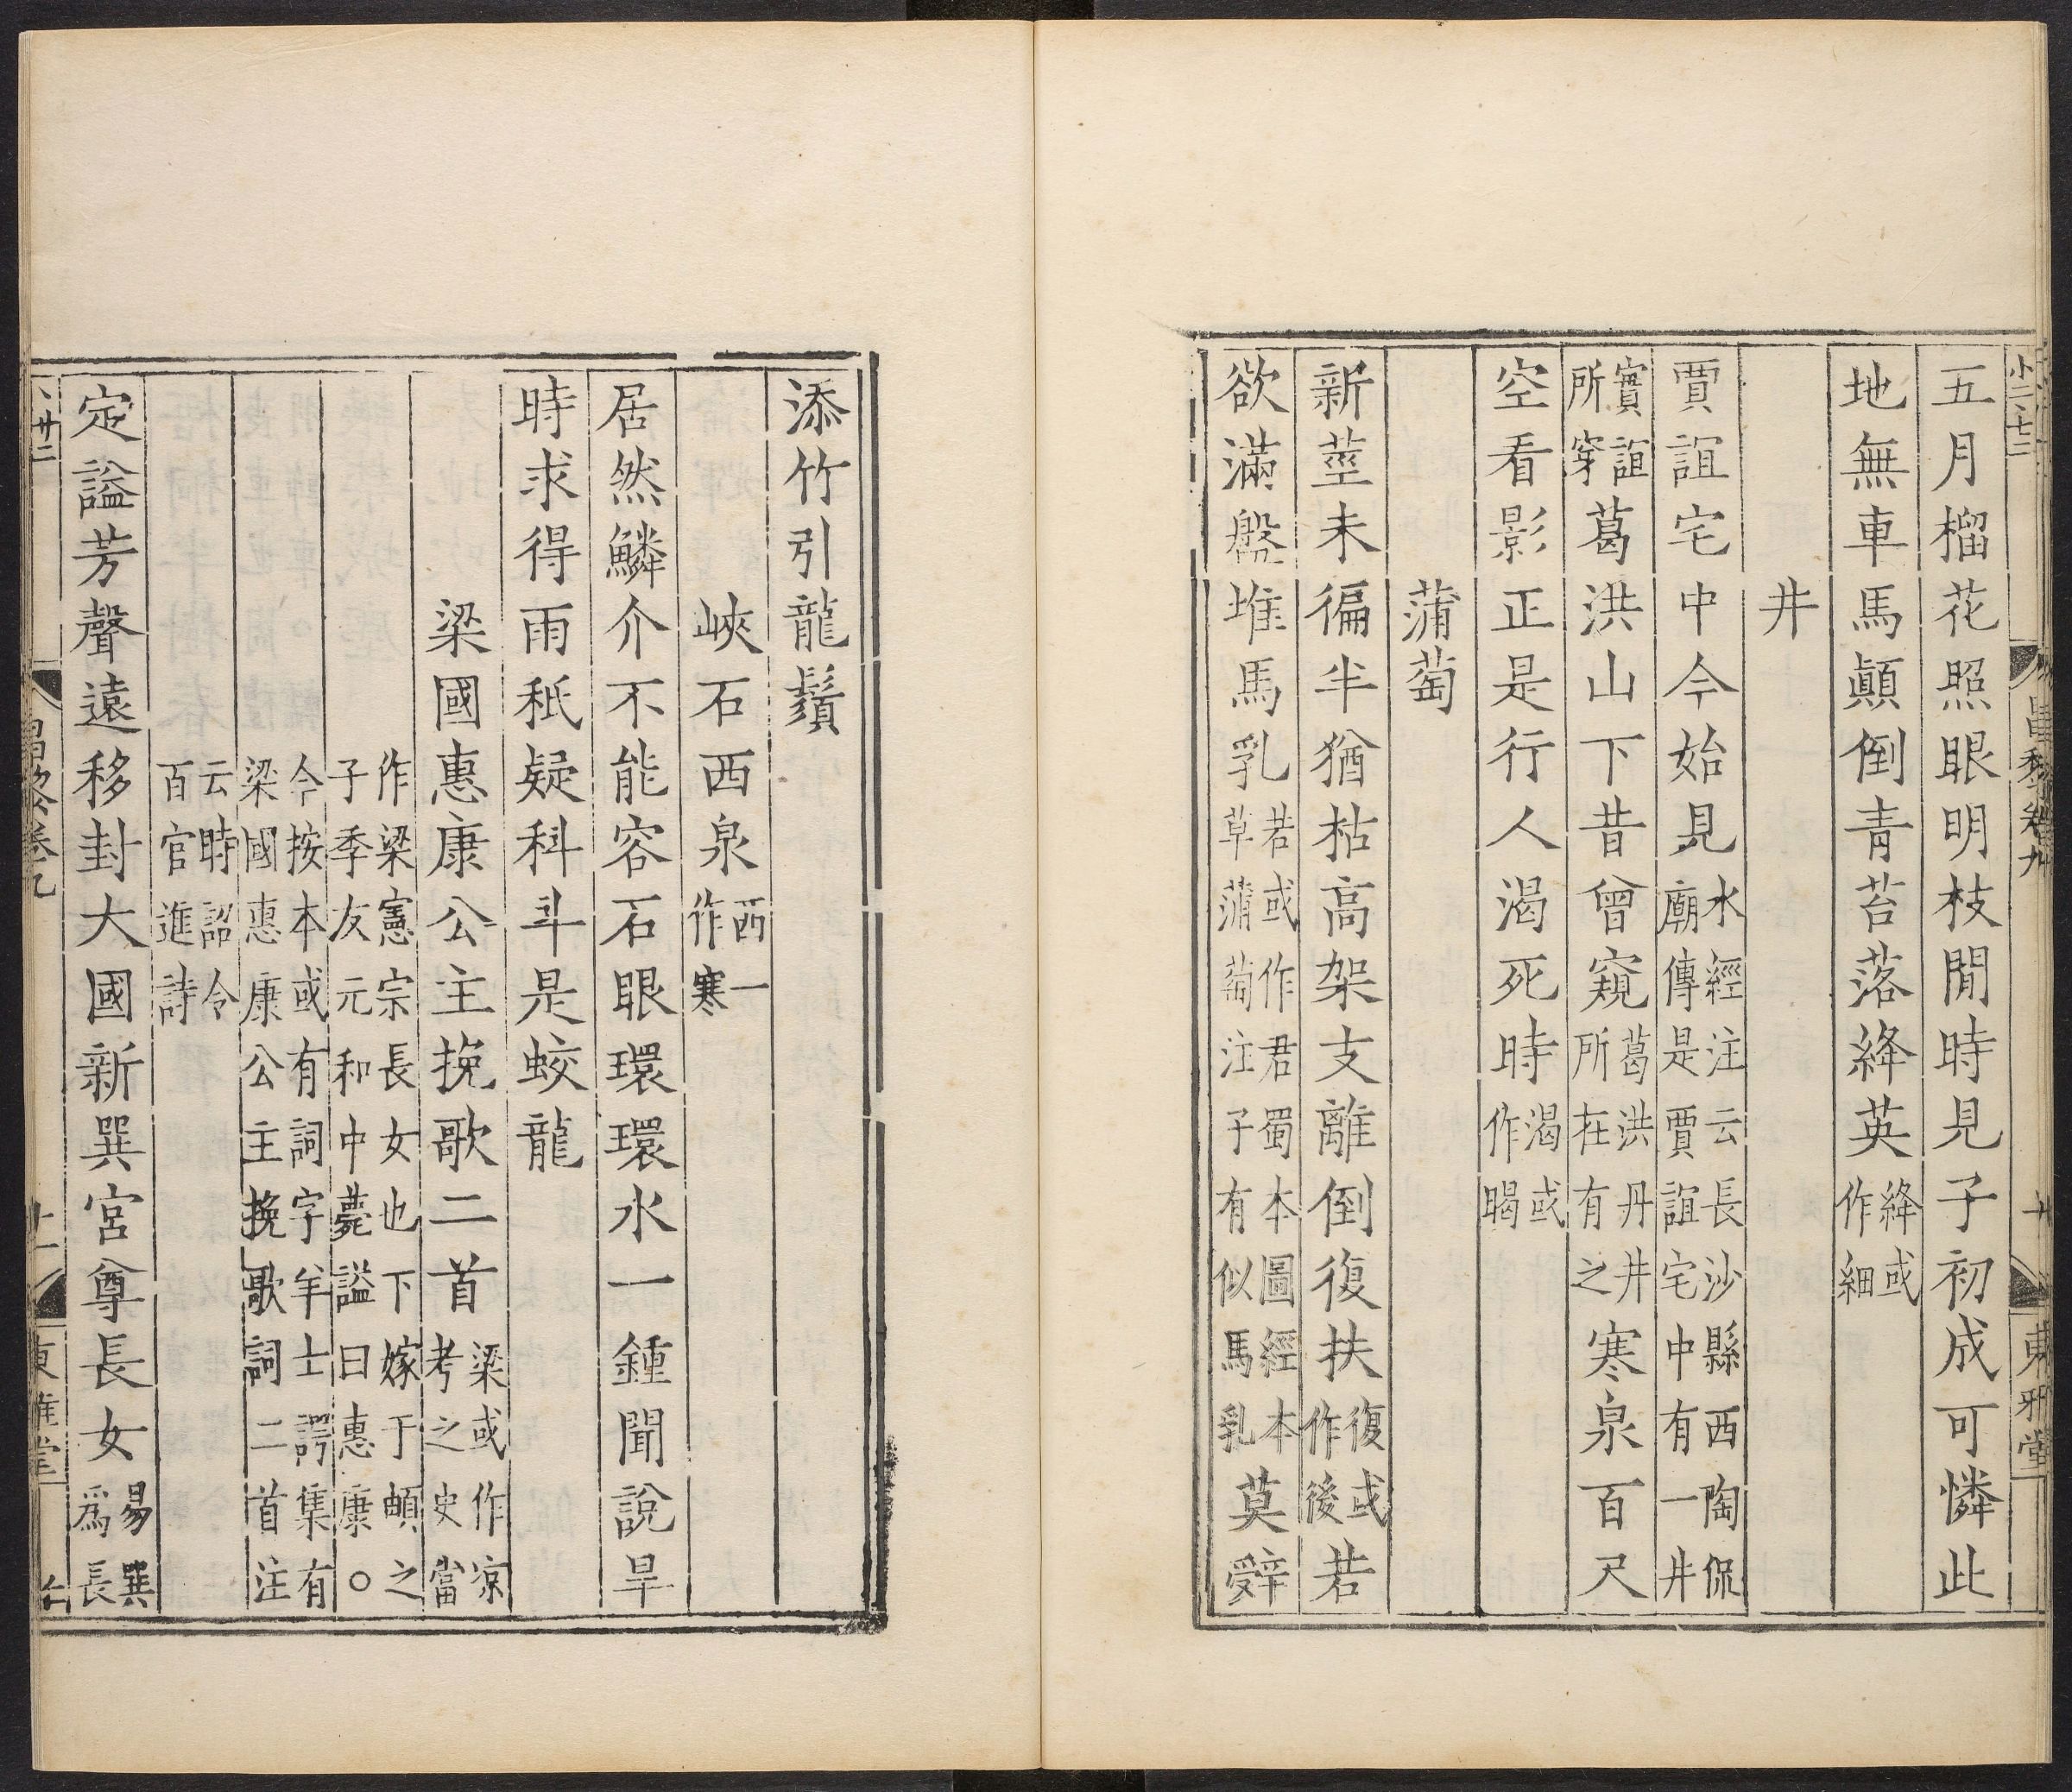 小二七二
昌黎卷九
十
東雅堂
五月榴花照眼明枝間時見子初成可憐此
地無車馬顚倒青苔落絳英絳或作細
井
賈誼宅中今始見水經注云長沙縣西陶侃廟傳是賈誼宅中有一井
實誼所穿葛洪山下昔曾窺葛洪丹井所在有之寒泉百尺
空看影正是行人渴死時渴或作暍
蒲萄
新莖未徧半猶枯高架支離倒復扶復或作後若
欲滿盤堆馬乳若或作君蜀本圖經本草蒲萄注子有似馬乳莫辭
添竹引龍鬚
峽石西泉西一作寒
居然鱗介不能容石眼環環水一鍾聞說旱
時求得雨秖疑科斗是蛟龍
梁國惠康公主挽歌二首梁或作凉考之史當
作梁憲宗長女也下嫁于頔之子季友元和中薨謚曰惠康○
今按本或有詞字羊士諤集有梁國惠康公主挽歌詞二首注
云時詔令百官進詩
定謚芳聲遠移封大國新巽宮尊長女易巽爲長
昌黎卷九
十一
東雅堂